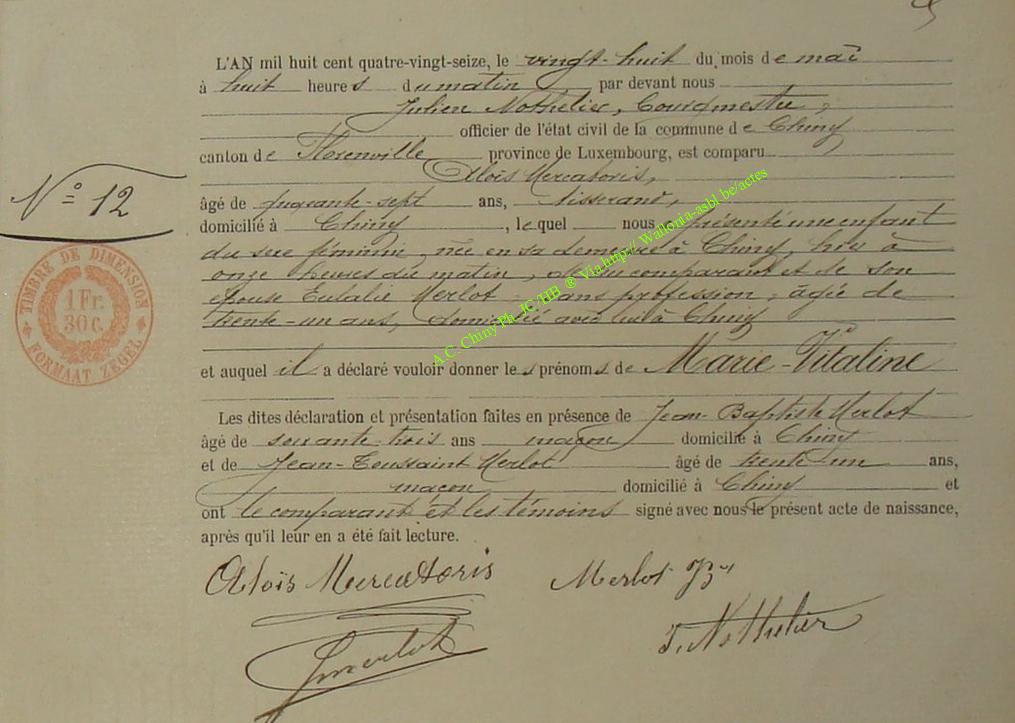 L'AN mil huit cent quatre-vingt-seize, le vingt-huit du mois de mai
à huit heures du matin par devant nous
Julien Nothelier, Bourgmestre,
officier de l'état civil de la commune de Chiny
canton de Florenville province de Luxembourg, est comparu
Aloïs Mercatoris,
âgé de quarante-sept ans, tisserand,
domicilié à Chiny, lequel nous a présenté une enfant
du sexe féminin, née en sa demeure à Chiny, hier à
onze heures du matin, de lui comparant et de son
épouse Eulalie Merlot sans profession, âgée de
trente-un ans, domicilié avec lui à Chiny
N° 12
TIMBRE DE DIMENSION
1 Fr.
30 c.
FORMAAT ZEGEL
et auquel il a déclaré vouloir donner les prénoms de Marie-Vitaline
Les dites déclaration et présentation faites en présence de Jean-Baptiste Merlot
âgé de soixante-trois ans maçon domicilié à Chiny
et de Jean-Toussaint Merlot âgé de trente-un ans,
maçon domicilié à Chiny et
ont le comparant et les témoins signé avec nous le présent acte de naissance,
après qu'il leur en a été fait lecture.
Aloïs Mercatoris Merlot JB
J. Nothelier
Jmerlot
A.C. Chiny Ph JC HB ® Via http// Wallonia-asbl.be/actes